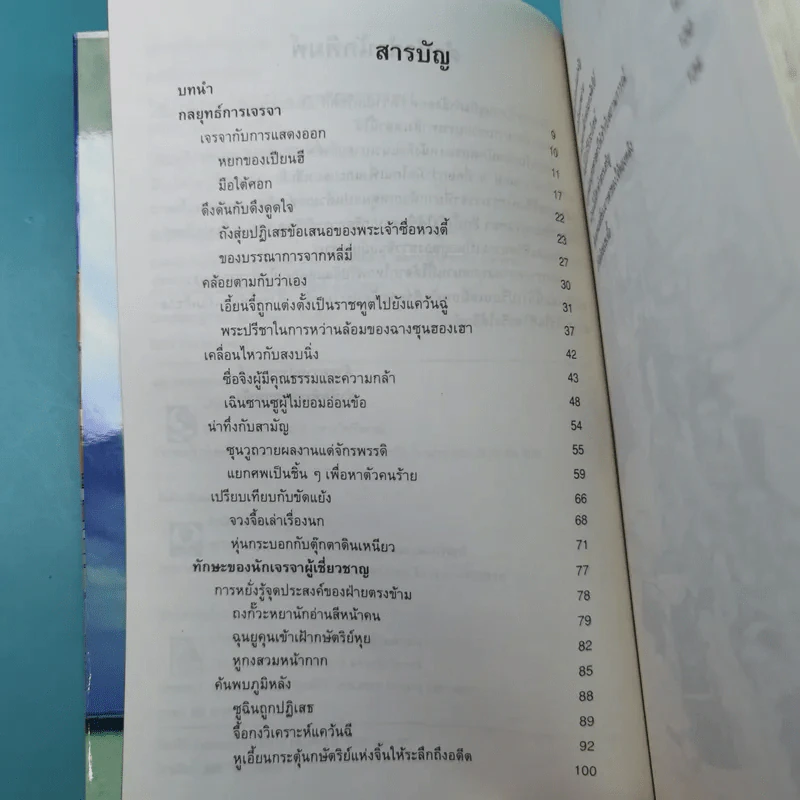 สารบัญ
บทนำ
กลยุทธ์การเจรจา 9
เจรจากับการแสดงออก 10
หยกของเปียนฮี 11
มือใต้ศอก 17
ดึงดันกับดึงดูดใจ 22
ถังสุ่ยปฏิเสธข้อเสนอของพระเจ้าซื่อหวงตี้ 23
ของบรรณาการจากหลี่มี่ 27
คล้อยตามกับว่าเอง 30
เอี้ยนจี๋ถูกแต่งตั้งเป็นราชฑูตไปยังแคว้นฉู่ 31
พระปรีชาในการหว่านล้อมของฉางซุนฮองเฮา 37
เคลื่อนไหวกับสงบนิ่ง 42
ซื่อจิงผู้มีคุณธรรมและความกล้า 43
เฉินซานซูผู้ไม่ยอมอ่อนข้อ 48
น่าทึ่งกับสามัญ 54
ซุนวูถวายผลงานแด่จักรพรรดิ 55
แยกศพเป็นชิ้น ๆ เพื่อหาตัวคนร้าย 59
เปรียบเทียบกับขัดแย้ง 66
จวงจื้อเล่าเรื่องนก 68
หุ่นกระบอกกับตุ๊กตาดินเหนียว 71
ทักษะของนักเจรจาผู้เชี่ยวชาญ 77
การหยั่งรู้จุดประสงค์ของฝ่ายตรงข้าม 78
ถงกั๊วะหยานักอ่านสีหน้าคน 79
ฉุนยูคุนเข้าเฝ้ากษัตริย์หุย 82
หูกงสวมหน้ากาก 85
ค้นพบภูมิหลัง 88
ซูฉินถูกปฏิเสธ 89
จื้อกงวิเคราะห์แคว้นฉี 92
หูเอี้ยนกระตุ้นกษัตริย์แห่งจิ้นให้ระลึกถึงอดีต 100